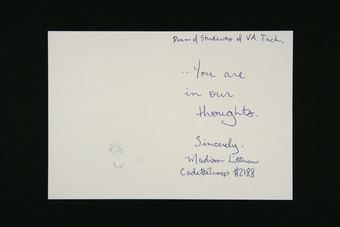 Dean of Students of VA. Tech.
...You are
in our
thoughts.
Sincerely,
Madison Littman
Cadette Troop #2188